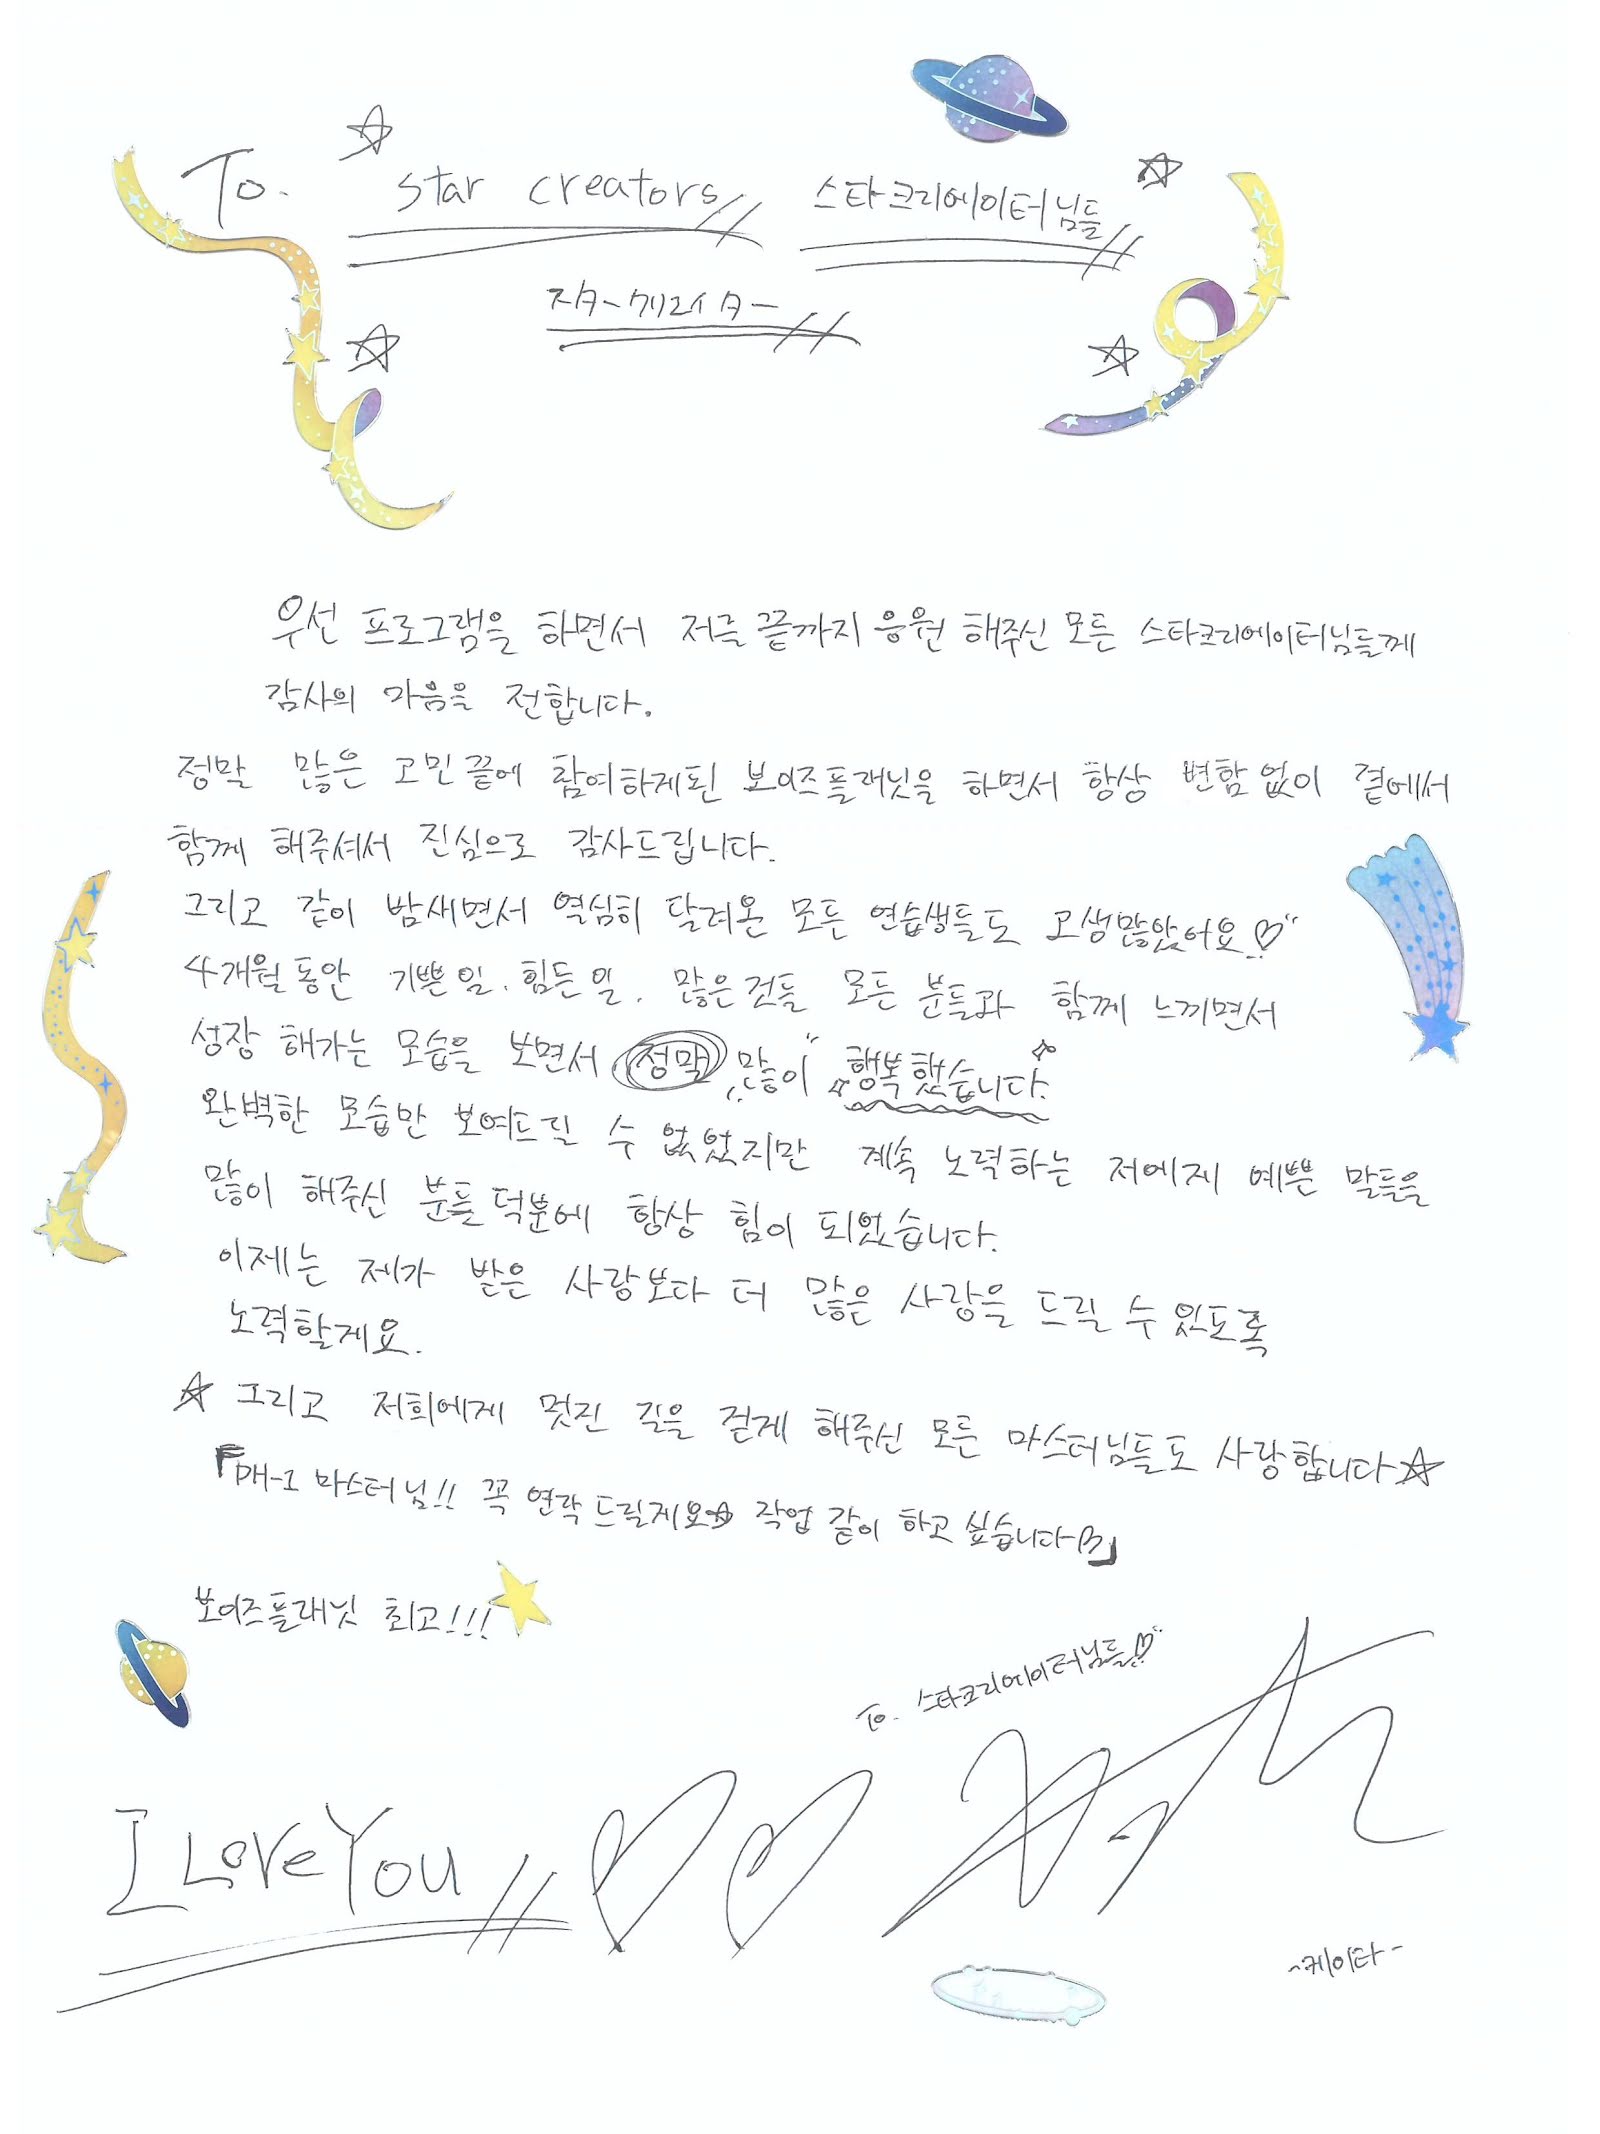 To. star creators 스타크리에이터님들
スタークリエイター
우선 프로그램을 하면서 저를 끝까지 응원 해주신 모든 스타크리에이터님들께
감사의 마음을 전합니다.
정말 많은 고민 끝에 참여하게된 보이즈플래닛을 하면서 항상 변함 없이 곁에서
함께 해주셔서 진심으로 감사드립니다.
그리고 같이 밤새면서 열심히 달려온 모든 연습생들도 고생많았어요♡
4개월동안 기쁜일. 힘든일. 많은것들 모든 분들과 함께 느끼면서
성장 해가는 모습을 보면서 정말 많이 행복했습니다.
완벽한 모습만 보여드릴 수 없었지만 계속 노력하는 저에게 예쁜 말들을
많이 해주신 분들 덕분에 항상 힘이 되었습니다.
이제는 제가 받은 사랑보다 더 많은 사랑을 드릴 수 있도록
노력할게요.
☆ 그리고 저희에게 멋진 길을 걷게 해주신 모든 마스터님들도 사랑합니다☆
「pH-1 마스터님!! 꼭 연락드릴게요☆ 작업 같이 하고 싶습니다♡」
보이즈플래닛 최고!!!
To. 스타크리에이터님들♡
I Love You ♡♡
-케이타-